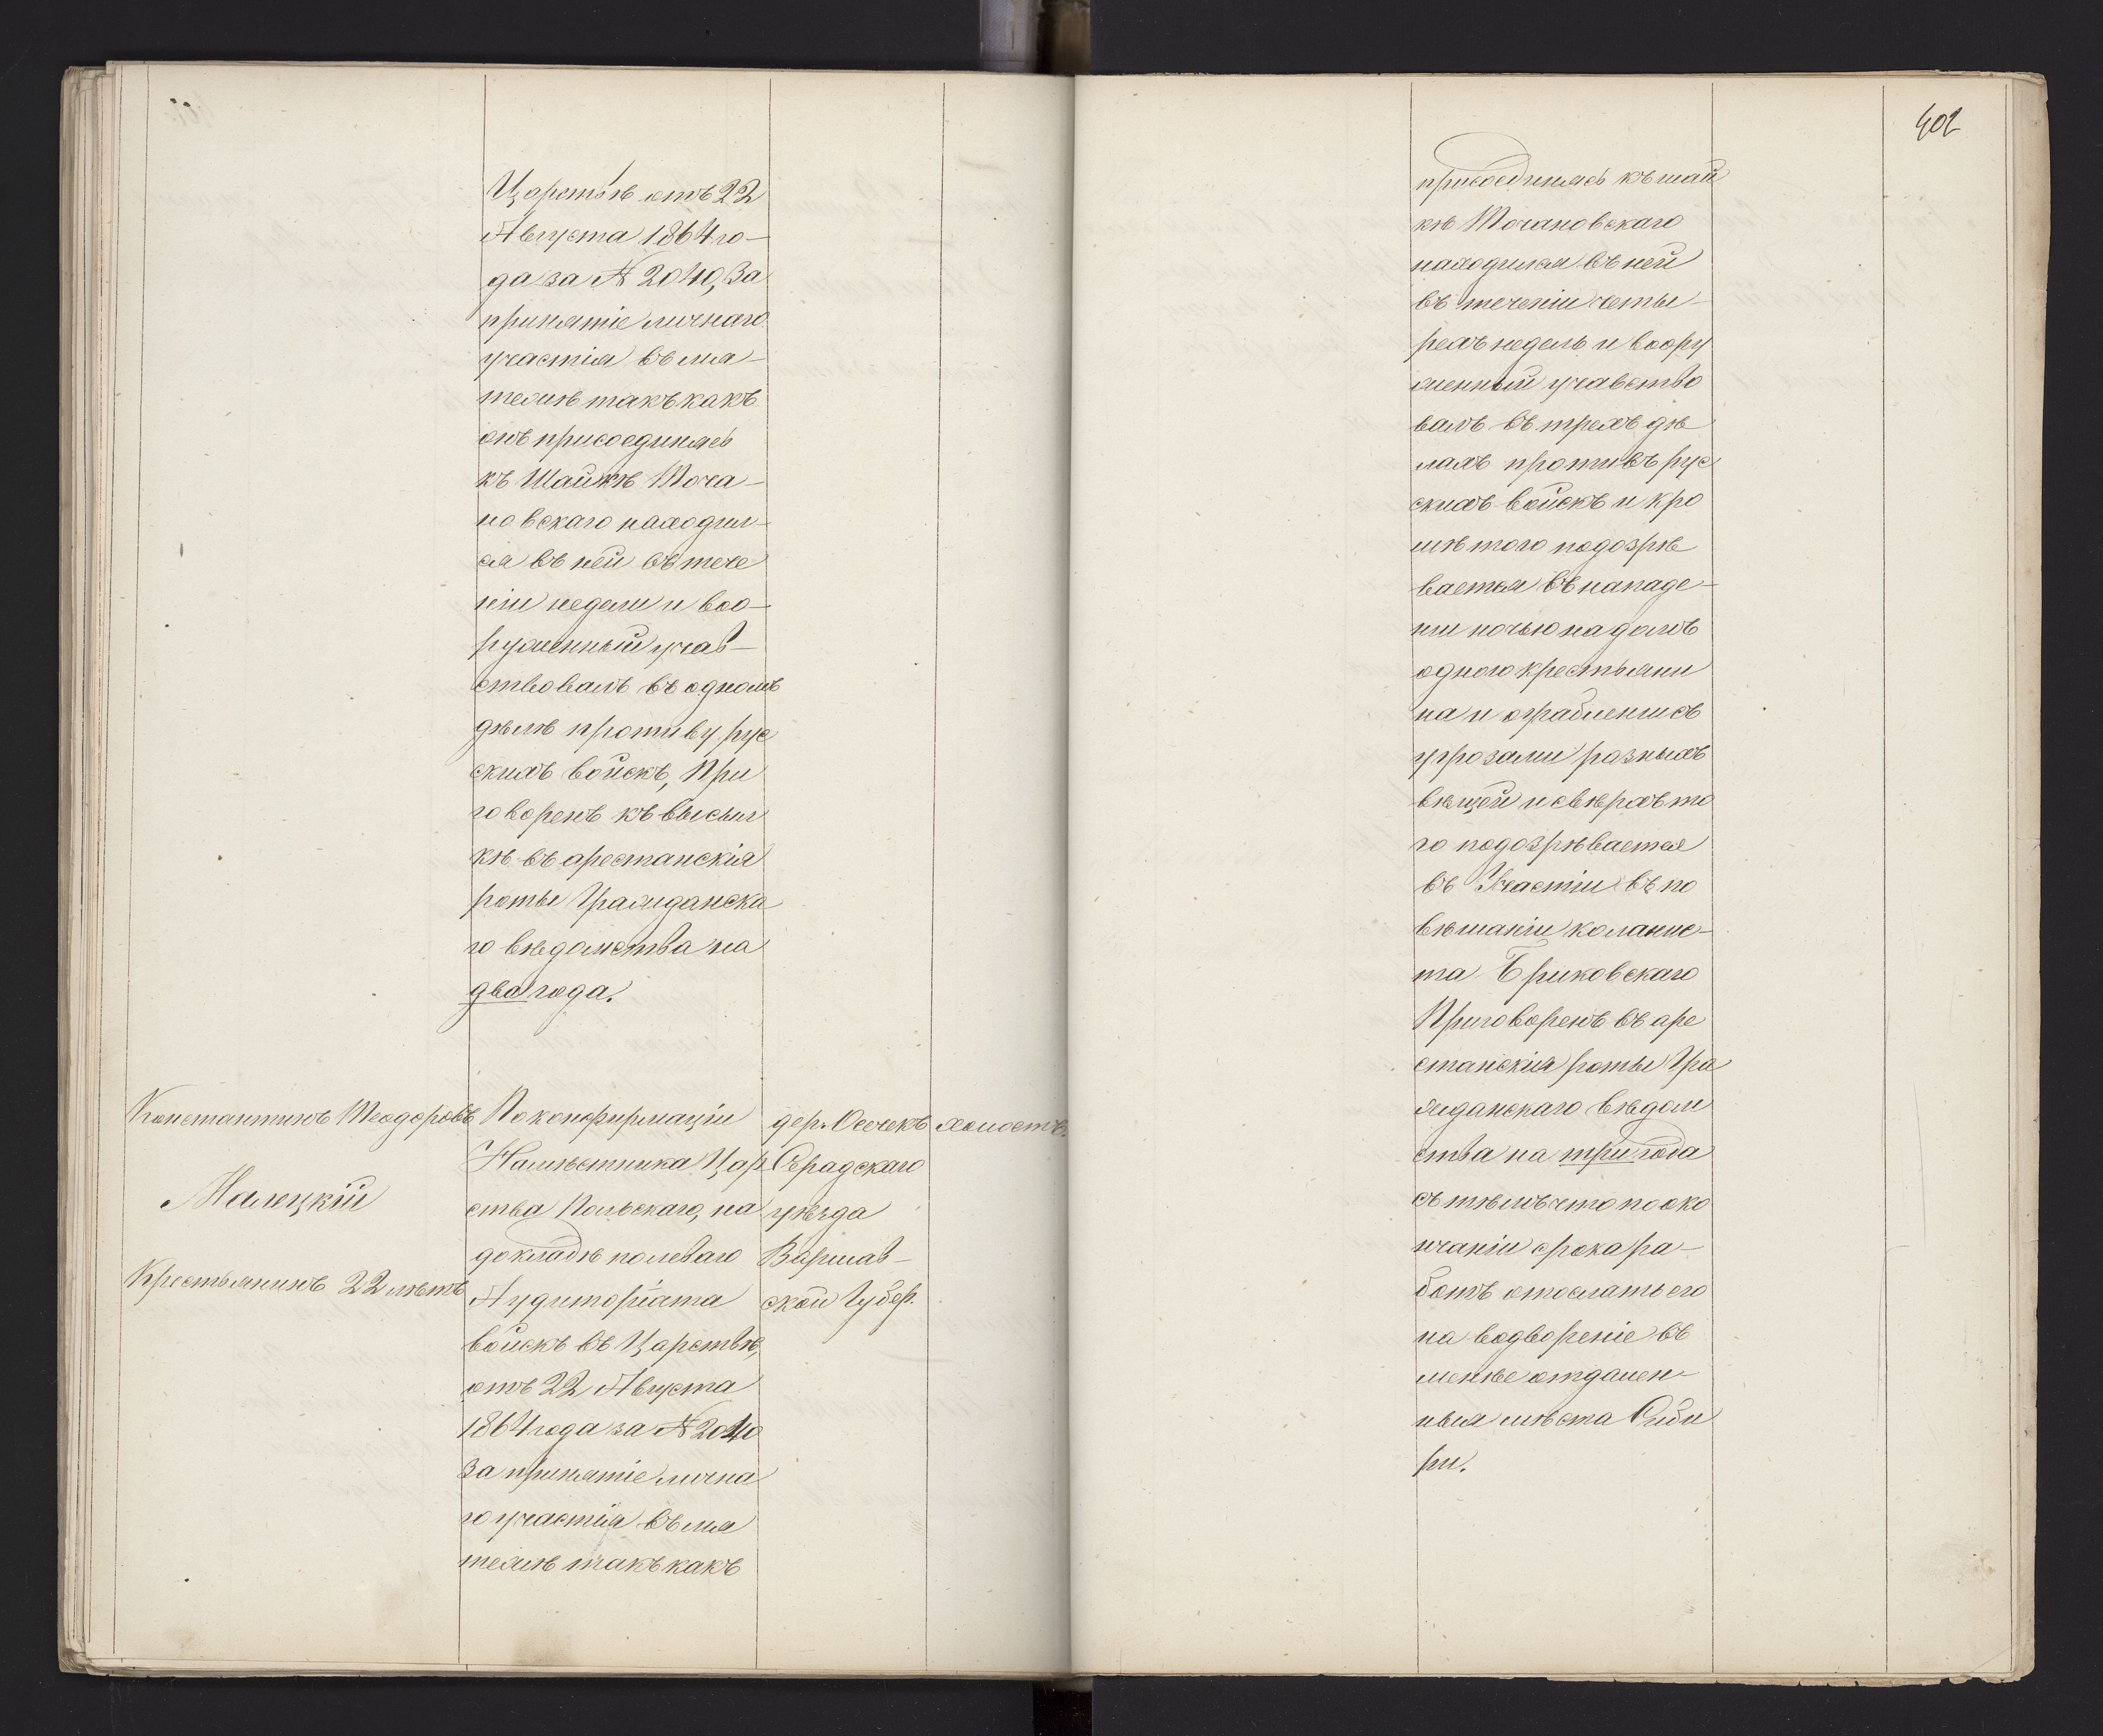 Царствѣ отъ 22
Августа 1864 го-
да за № 2040, За
принятіе личнаго
участія въ мя-
тежѣ такъ какъ
онъ присоединясь
къ Шайкѣ Точа-
новскаго находил-
ся въ ней въ тече
ніи недели и воо-
руженный учав-
ствовалъ въ одномъ
дѣлѣ противу рус
скихъ войскъ, При
говоренъ къ высыл
кѣ въ арестанскія
роты Гражданска
го вѣдомства на
два года.
Константинъ Теодоровъ
Малецкій
Крестьянинъ 22 лѣтъ
По конфирмаціи
Намѣстника Цар
ства Польскаго, на
докладѣ полеваго
Аудиторіата
войскъ въ Царствѣ,
отъ 22 Августа
1864 года за № 2040
За принятіе лична
го участія въ мя
тежѣ такъ какъ
дер. Осечекъ
Серадскаго
уѣзда
Варшав-
ской Губер.
холостъ.
402
присоединясь къ шай
кѣ Точановскаго
находился въ ней
въ теченіи четы-
рехъ недель и воору
женный учавство
валъ въ трехъ дѣ
лахъ противъ рус
скихъ войскъ и кро
мѣ того подозрѣ
вается въ нападе-
ніи ночью на домъ
одного крестьяни
на и ограбленіи съ
угрозами разныхъ
вѣщей и свѣрхъ то
го подозрѣвается
въ Участіи въ по
вѣшаніи колонис-
та Бриковскаго
Приговоренъ въ аре
станскія роты Гра
жданскаго вѣдом
ства на три года
съ тѣмъ что по око
нчаніи срока ра-
ботъ отослать его
на водвореніе въ
менѣе отдален-
ныя мѣста Сиби
ри.